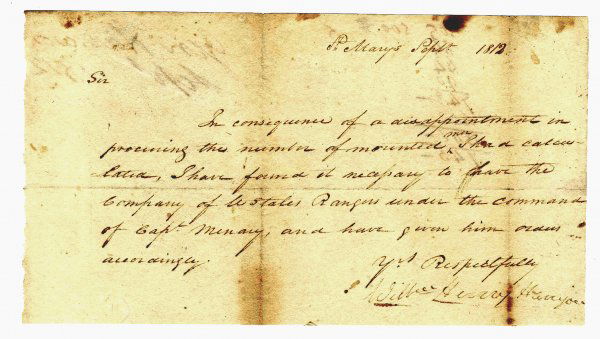 St Mary's Sept. 1812
Sir
In consequence of a disappointment in
procuring the number of mounted men I had calcu-
lated, I have found it necessary to have the
Company of U States Rangers under the command
of Capt. Menary, and have given him orders
accordingly.
Yrs Respectfully
Willm Henry Harrison